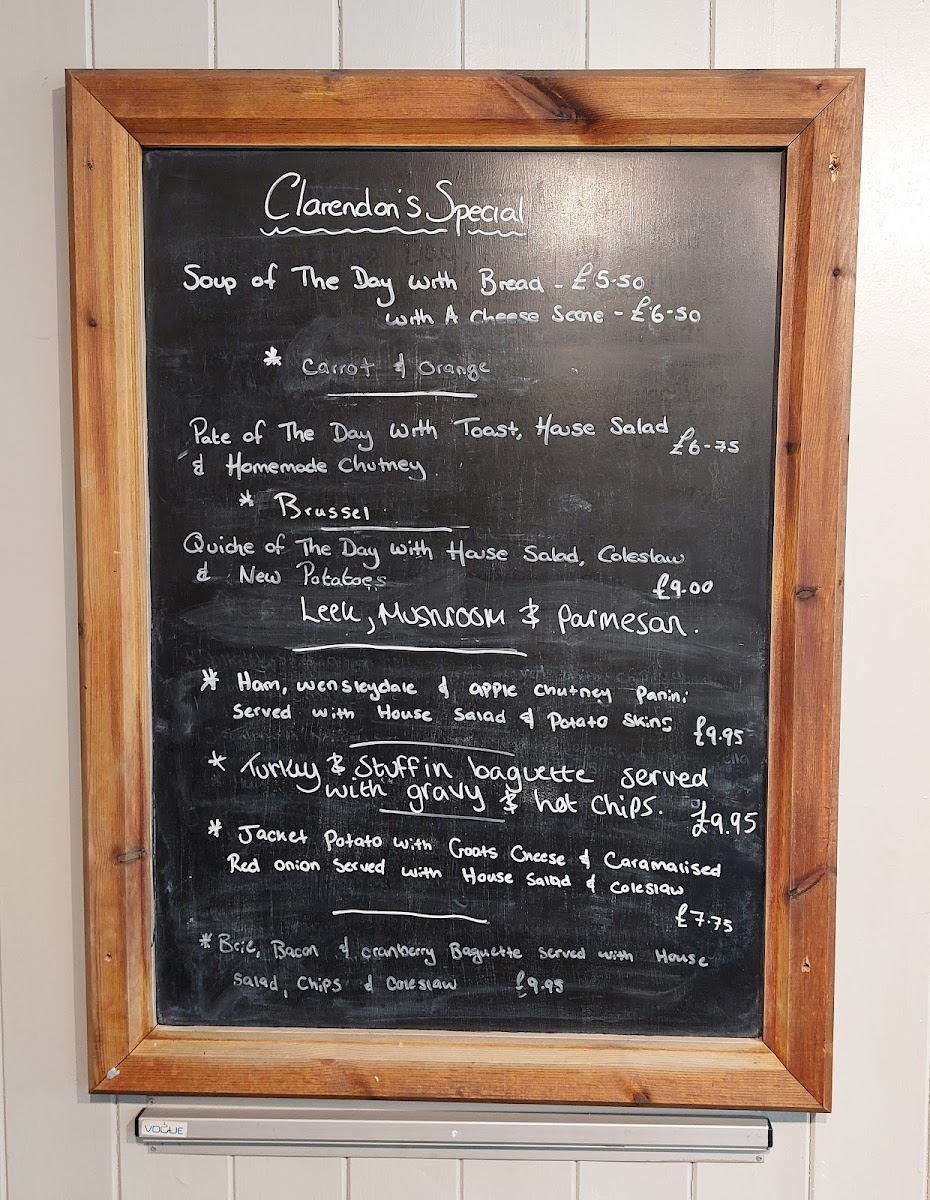 Clarendon's Special
Soup of The Day with Bread - £5-50
with A cheese Scone - £6-50
* Carrot & Orange
Pate of The Day with Toast, House Salad £6-75
& Homemade Chutney.
* Brussel.
Quiche of The Day with House Salad, Coleslaw
& New Potatoes £9.00
Leek, Mushroom & Parmesan.
* Ham, wensleydale & apple chutney panini
Served with House Salad & Potato skins £9.95
* Turkey & Stuffin baguette served
with gravy & hot chips. £9.95
* Jacket Potato with Goats Cheese & Caramalised
Red onion Served with House Salad & coleslaw
£7.75
* Brie, Bacon & cranberry Baguette served with House
Salad, Chips & Coleslaw £9.95
VOGUE